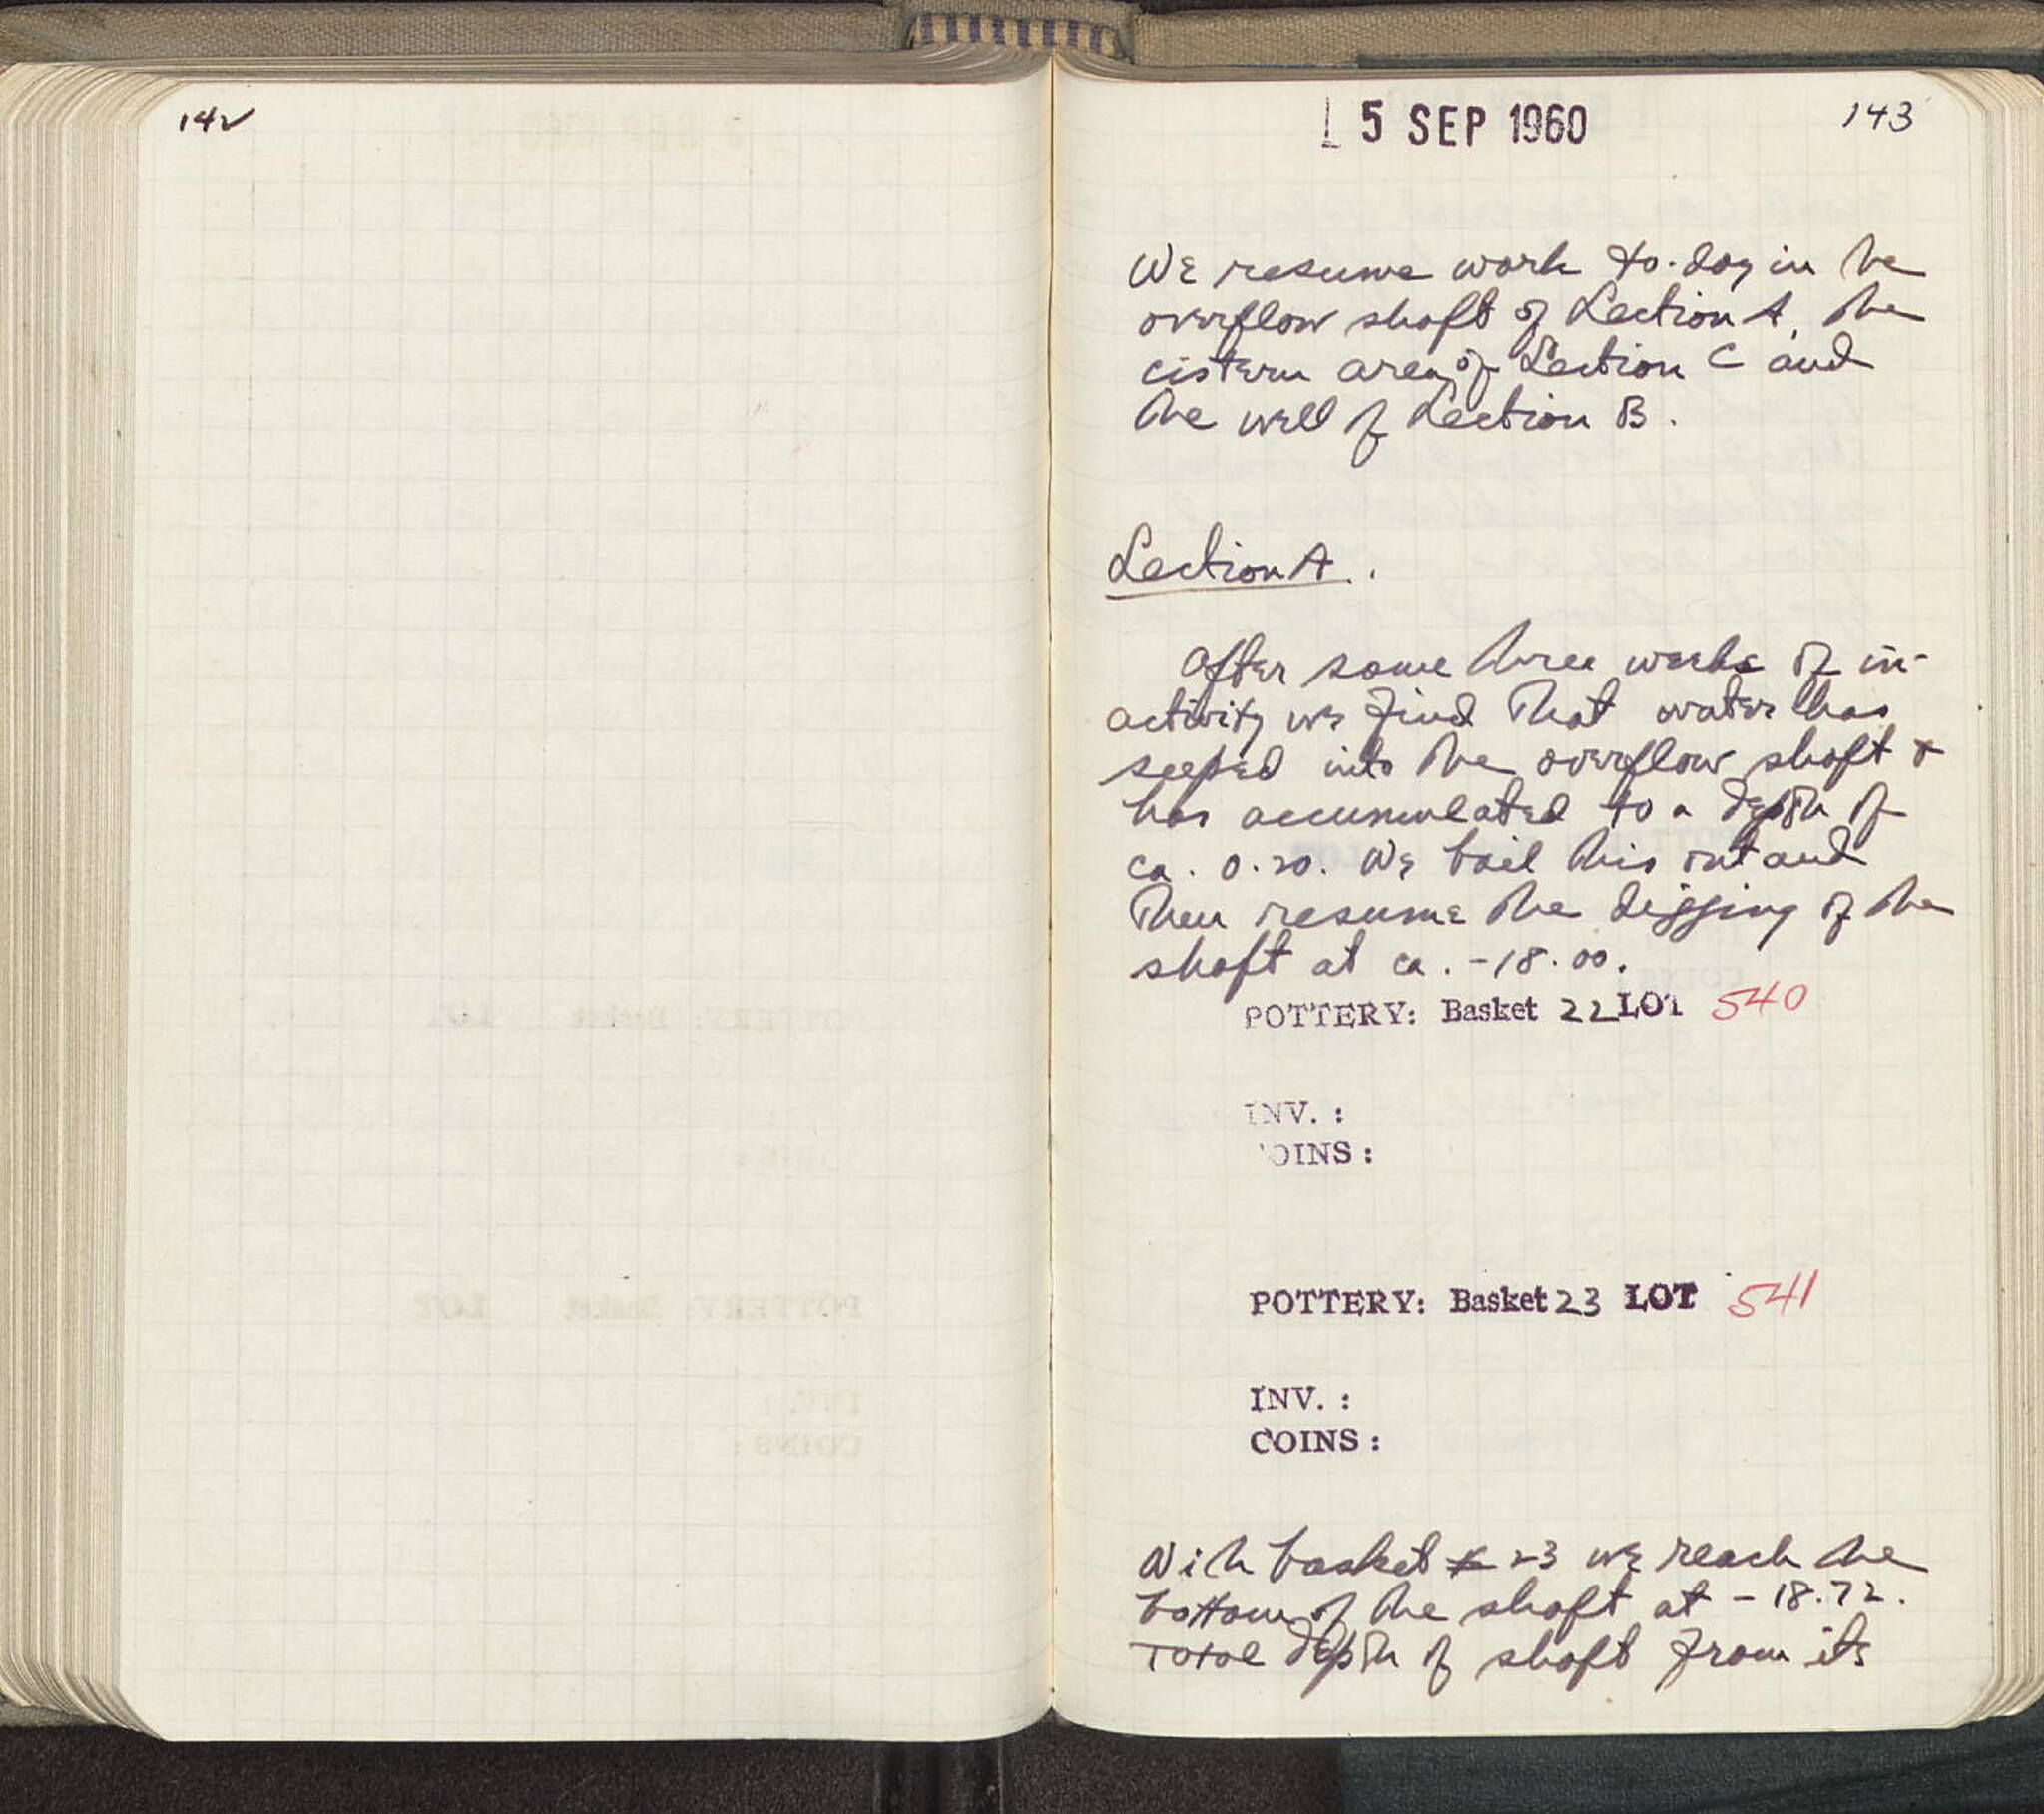 142
5 SEP 1960
143
We resume work to-day in the
overflow shaft of Section A, the
cistern area of Section C and
the well of Section B.
Section A.
After some three weeks of in-
activity we find that water has
seeped into the overflow shaft &
has accumulated to a depth of
ca. 0.20. We bail this out and
then resume the digging of the
shaft at ca. -18.00.
POTTERY: Basket 22 LOT 540
INV. :
COINS :
POTTERY: Basket 23 LOT 541
INV. :
COINS :
With basket # 23 we reach the
bottom of the shaft at -18.72.
Total depth of shaft from its